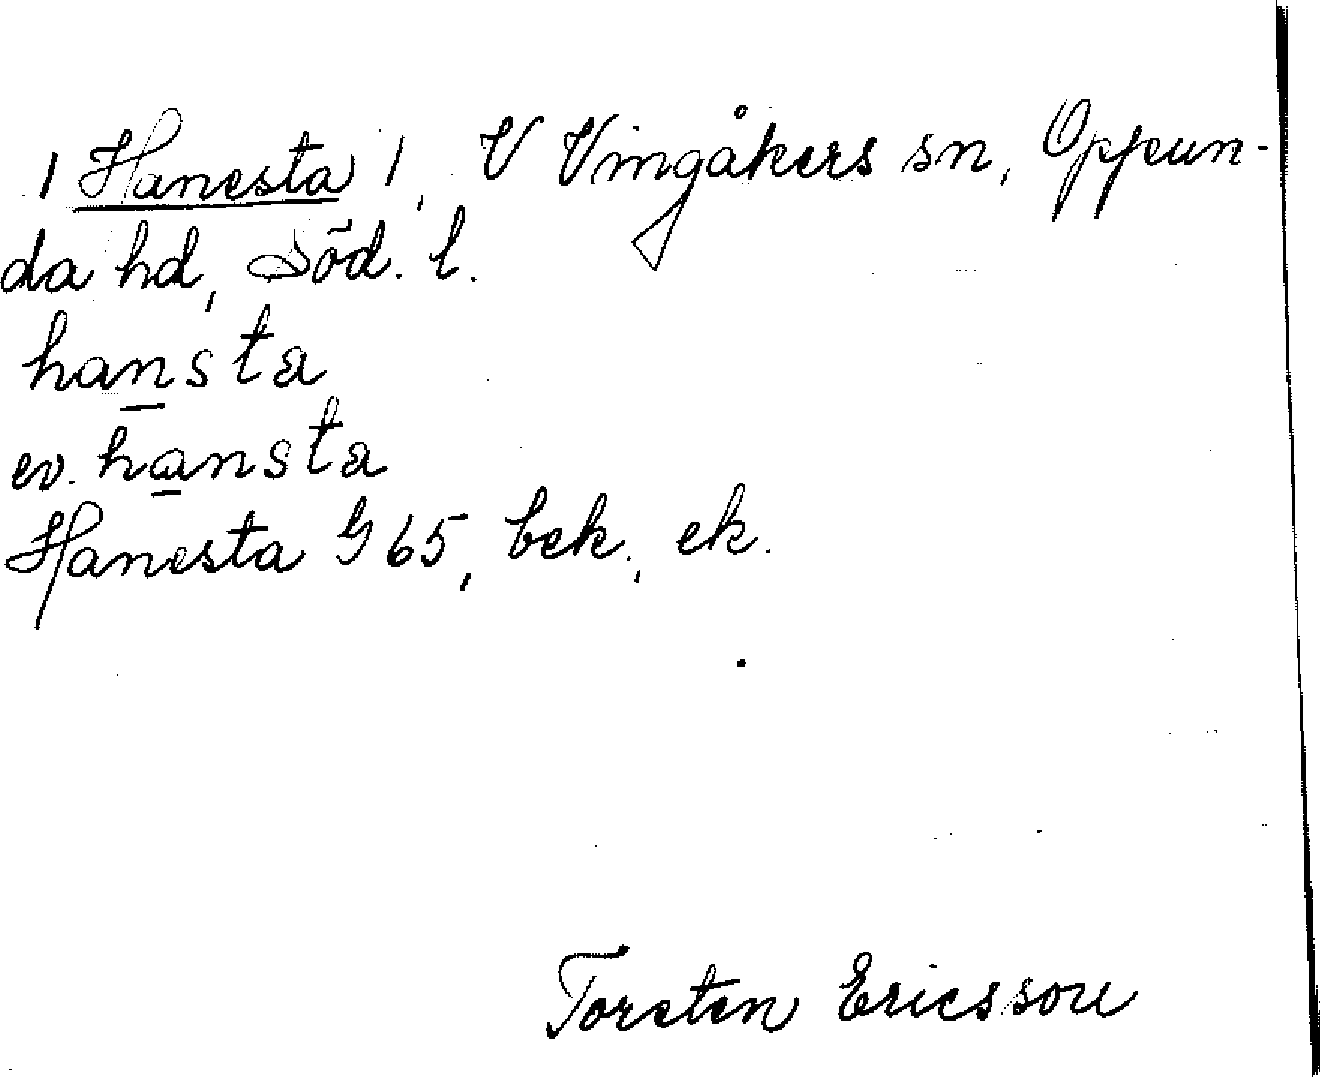 / Hanesta /, V Vingåkers sn, Oppun-
da hd, Söd. l.
hansta
ev. hansta
Hanesta G 65, bek., ek.
Torsten Ericsson